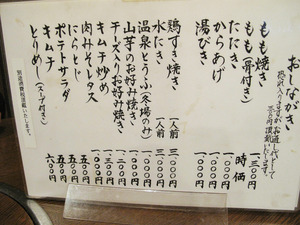 おしながき
もも焼き 一、三〇〇円
もも(骨付き) 時価
たたき 一、〇〇〇円
からあげ 一、〇〇〇円
湯びき 一、〇〇〇円
鶏すき焼き 一人前 三、〇〇〇円
水だき 一人前 三、〇〇〇円
温泉とうふ(冬場のみ)
山芋のお好み焼き
チーズ入りお好み焼き
キムチ炒め
肉みそレタス
にらとじ
ポテトサラダ 五〇〇円
キムチ 五〇〇円
とりめし(スープ付き) 六〇〇円
別途消費税頂戴いたします。